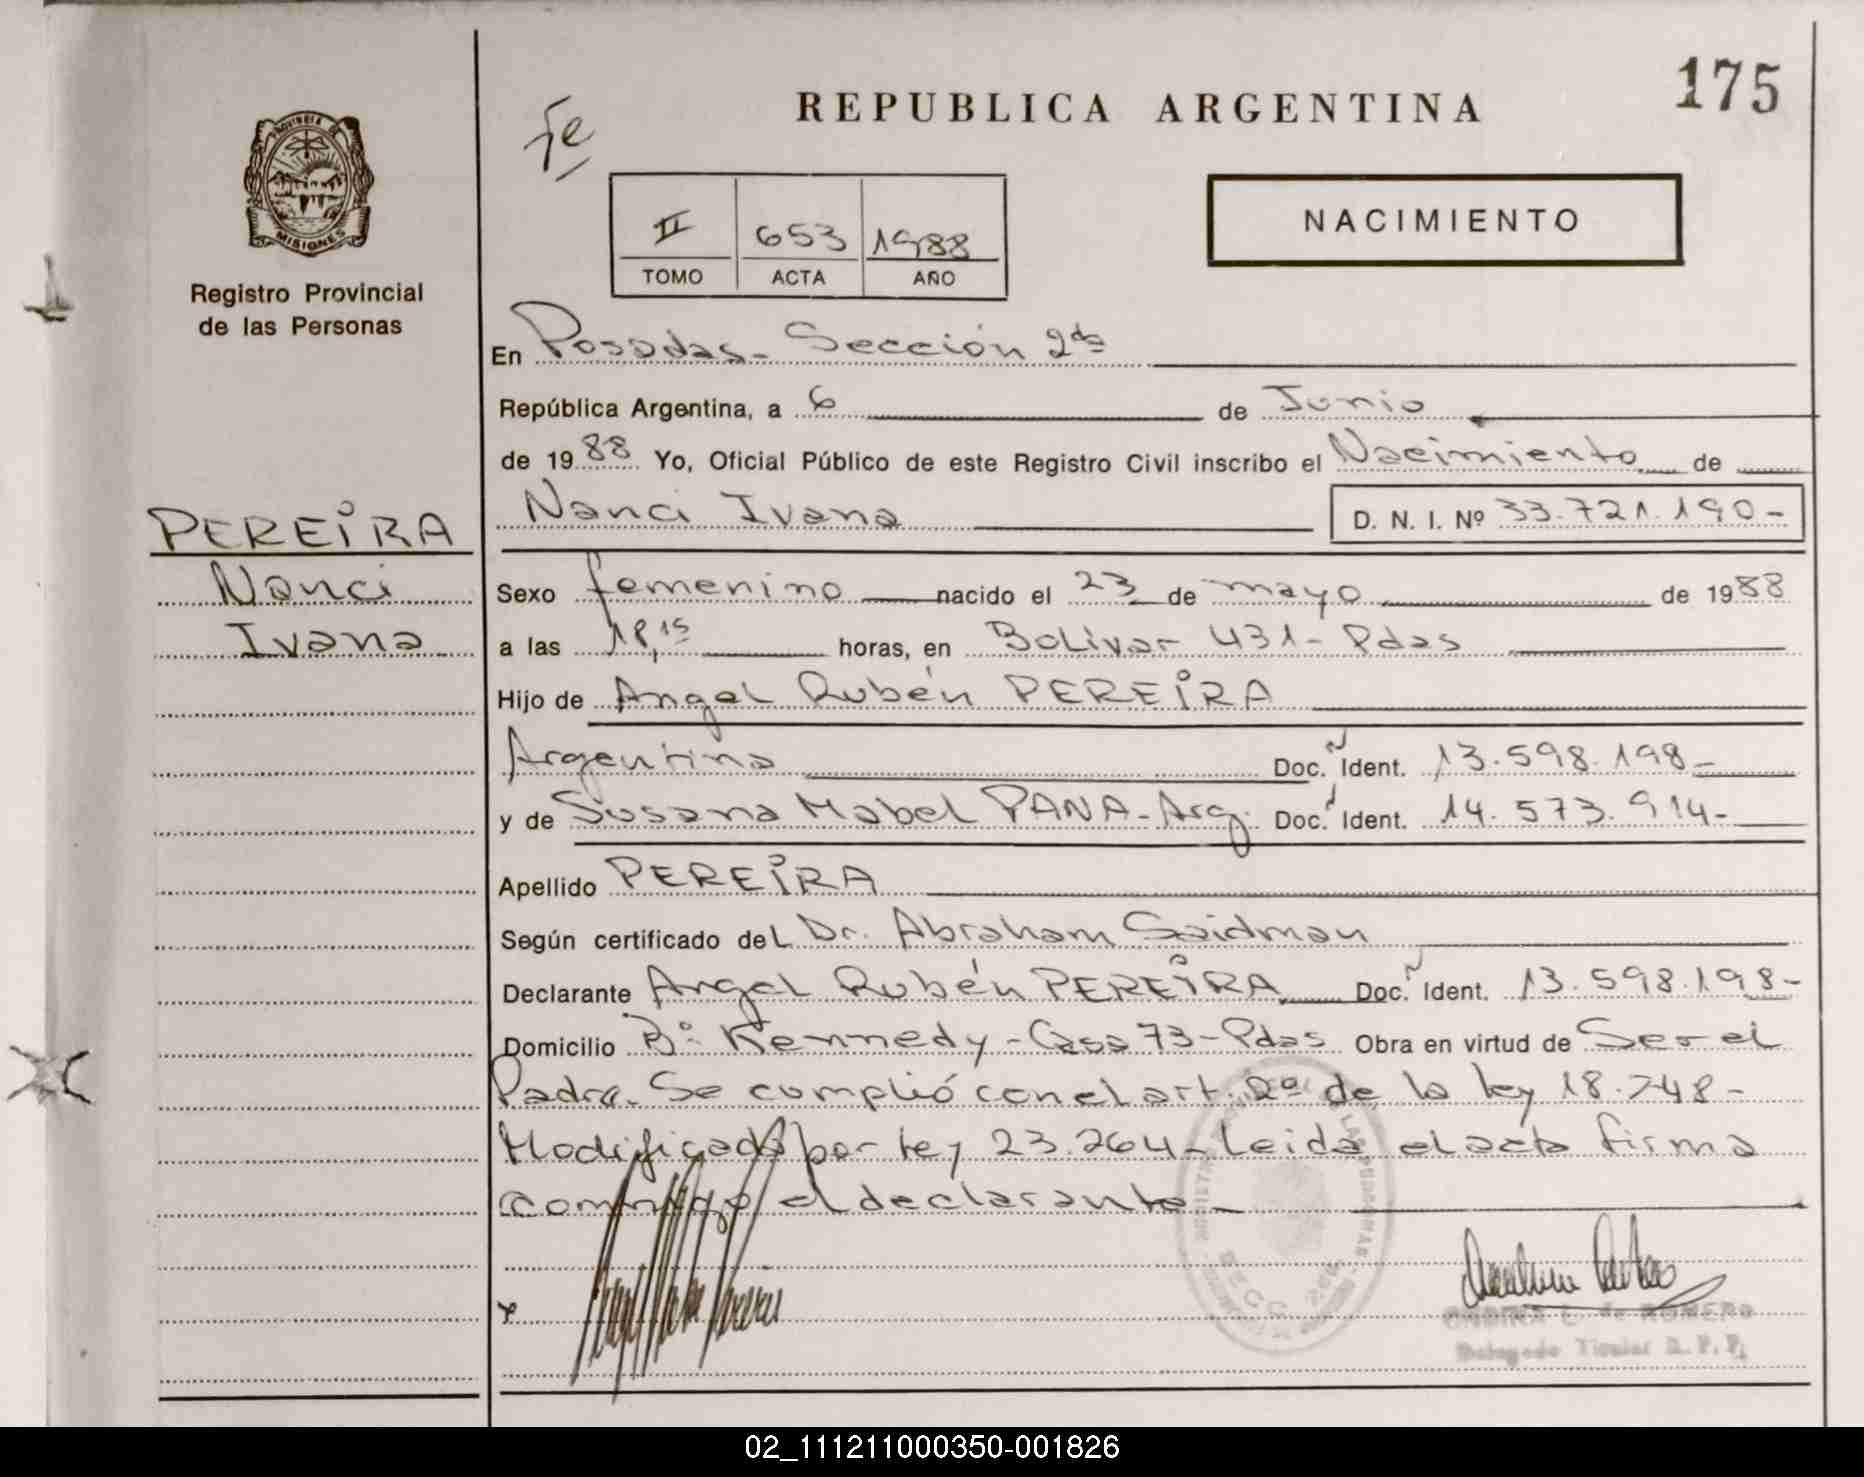 175
REPUBLICA ARGENTINA
Fe
NACIMIENTO
II 653 1988
TOMO ACTA AÑO
PROVINCIA DE
MISIONES
Registro Provincial
de las Personas
En Posadas - Sección 2da
República Argentina, a 6 de Junio
de 1988 Yo, Oficial Público de este Registro Civil inscribo el Nacimiento de
Nanci Ivana D. N. I. Nº 33.721.190-
PEREIRA
Nanci
Ivana
Sexo femenino nacido el 23 de mayo de 1988
a las 18,15 horas, en Bolívar 431 - Pdas
Hijo de Angel Rubén PEREIRA
Argentina Doc. Ident. 13.598.198-
y de Susana Mabel PANA - Arg. Doc. Ident. 14.573.914-
Apellido PEREIRA
Según certificado del Dr. Abraham Saidman
Declarante Angel Rubén PEREIRA Doc. Ident. 13.598.198-
Domicilio Bº Kennedy - Casa 73 - Pdas Obra en virtud de Ser el
Padre. Se cumplió con el art. 2º de la ley 18.248-
Modificado por ley 23.264 - Leida el acta firma
conmigo el declarante -
ONDINA L. de ROMERO
Delegado Titular R. P. P.
02_111211000350-001826